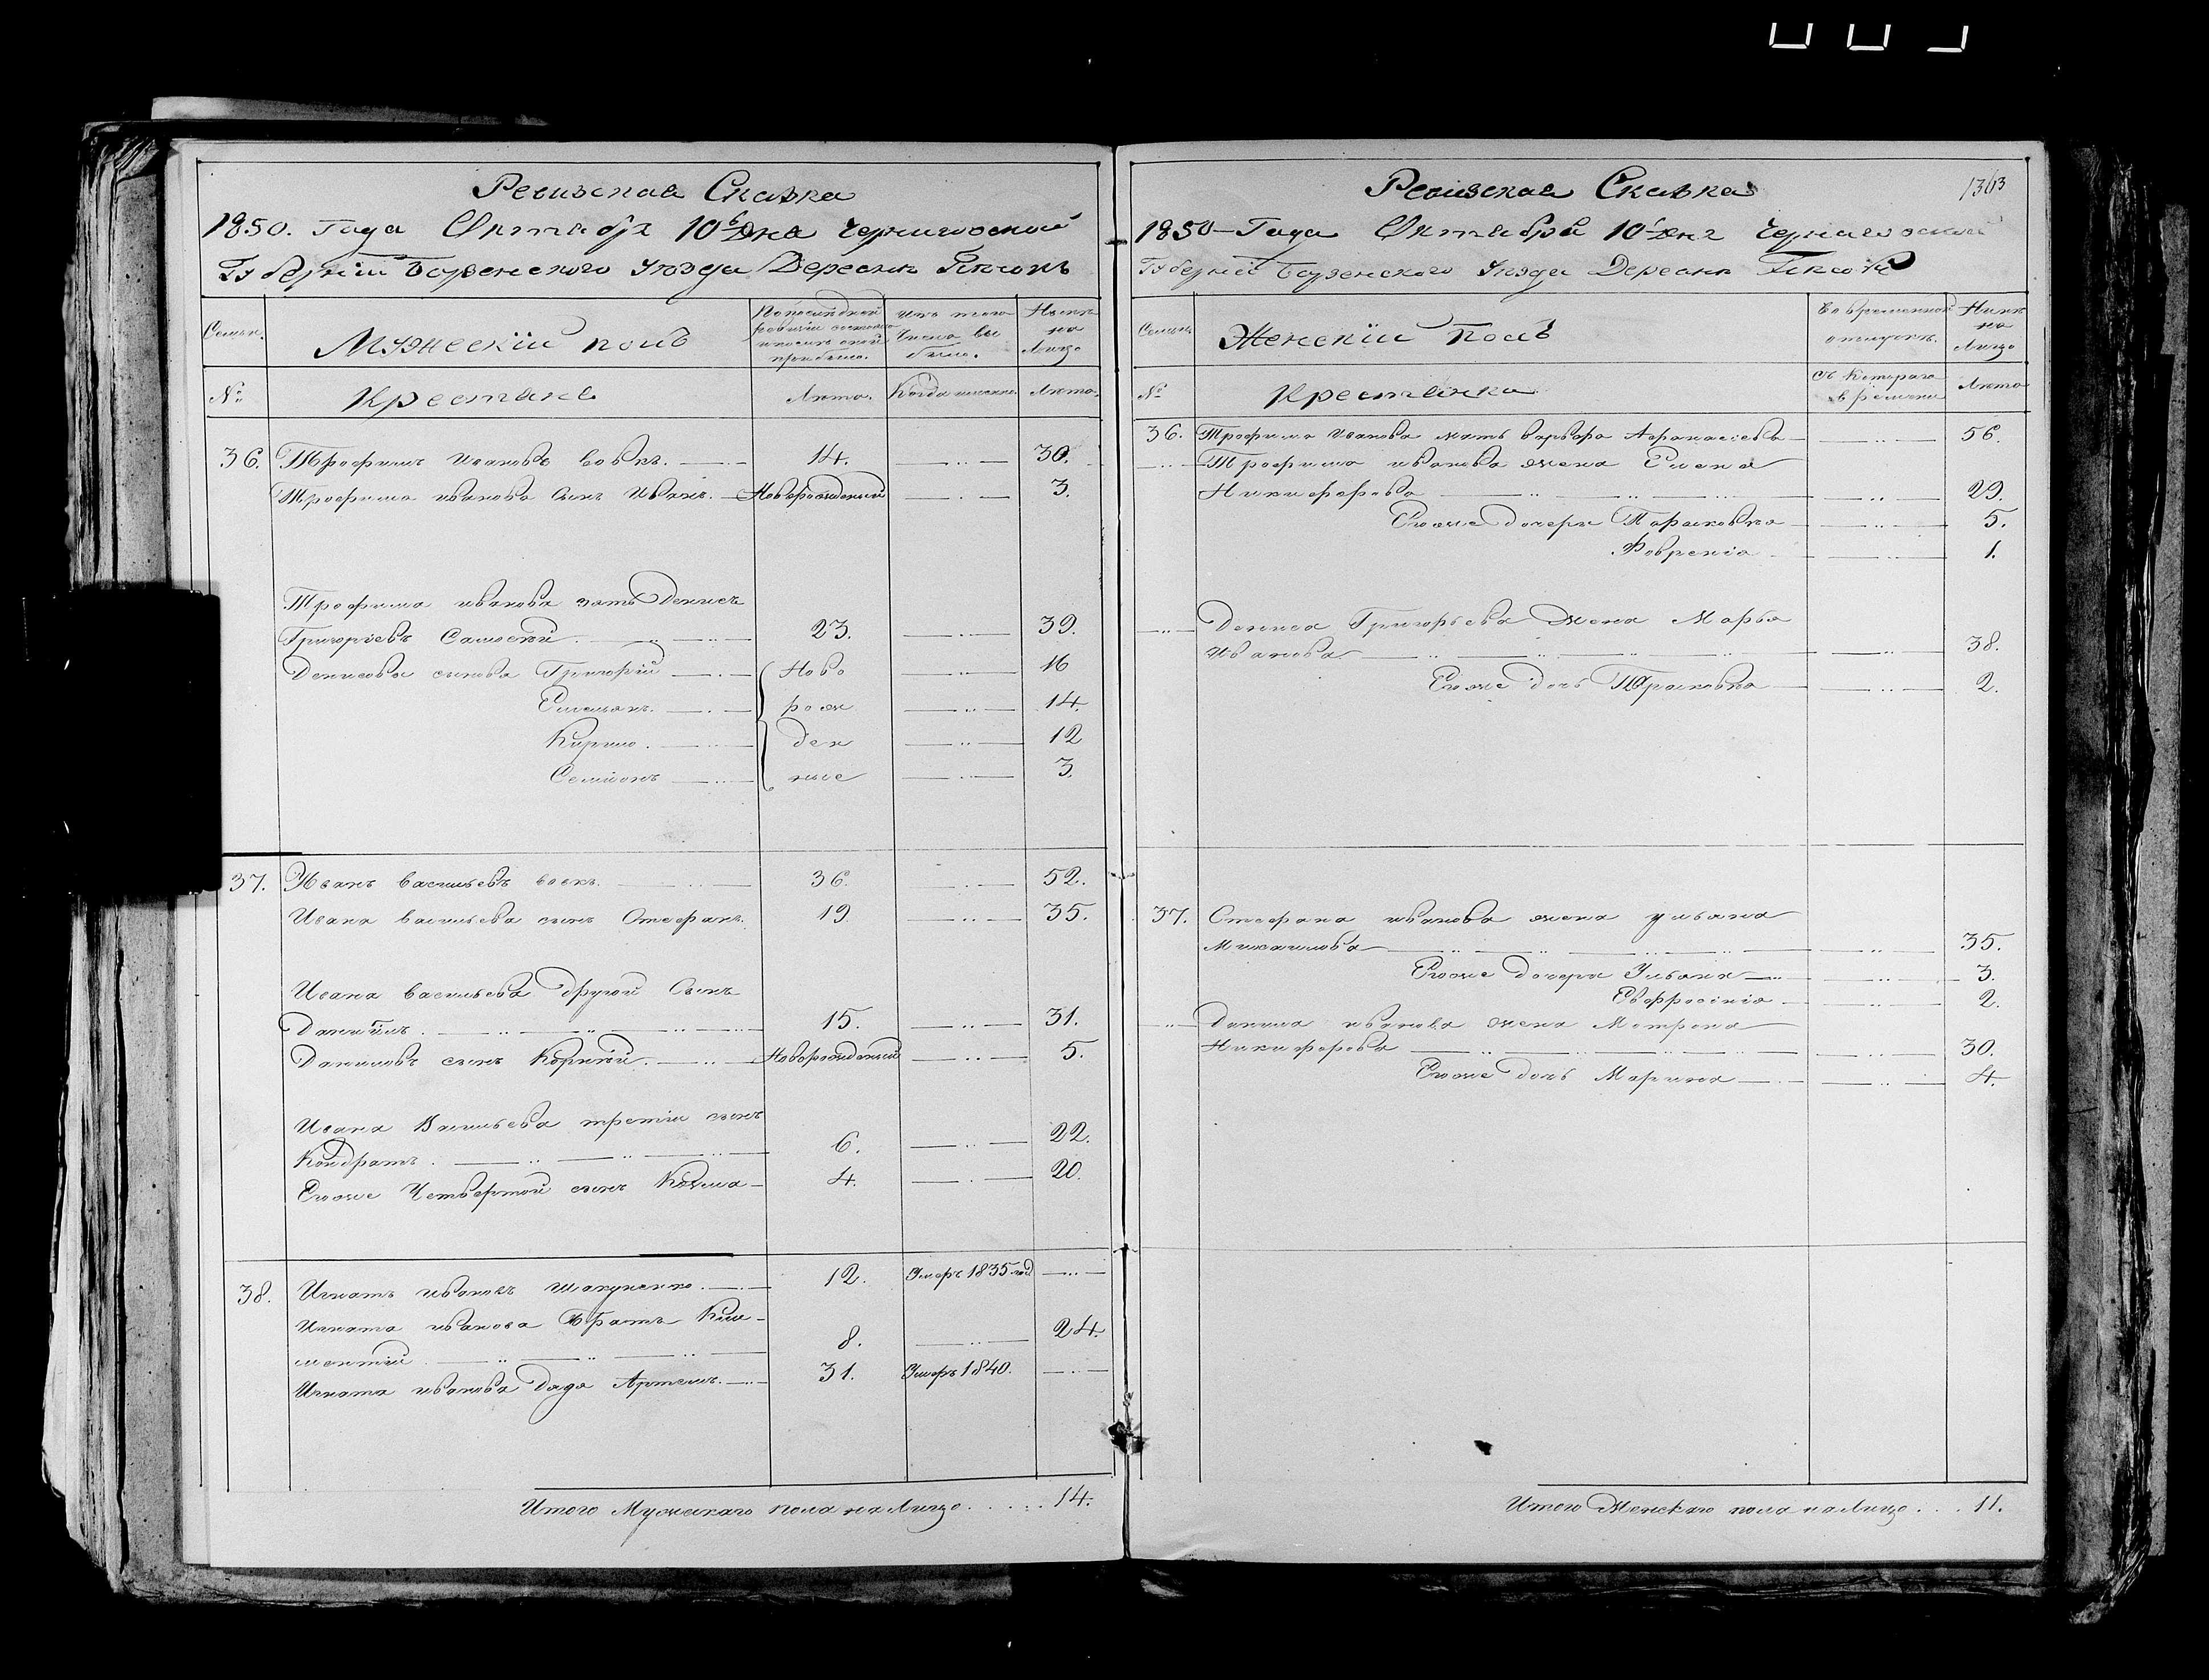 Ревизская Сказка
1850. Года Октября 10го Дня Черниговской
Губернiи Борзенского Уезда Деревни
Семьи.
Мужескiй полъ
По последней ревизiи состояло и после оной прибыло.
Изъ того числа выбыло.
Ныне на Лицо
№
Крестьяне
Лета.
Когда именно.
Лета.
36. Трофимъ Ивановъ Вовкъ. 14. 30.
Трофима Иванова сынъ Иванъ. Новорожденный 3.
Трофима Иванова зять Денисъ
Григорiевъ 23. 39.
Денисовы сыновья Григорiй Ново 16
Емельянъ. рож 14.
Кирило. ден 12
Семионъ ные 3.
37. Иванъ Васильевъ Вовкъ. 36. 52.
Ивана Васильева сынъ Стефанъ. 19. 35.
Ивана Васильева другой Сынъ
Данiилъ. 15. 31.
Даниловъ сынъ Корнiй. Новорожденный 5.
Ивана Васильева третiи сынъ
Кондратъ. 6. 22.
Егоже Четвертой сынъ Козма 4. 20.
38. Игнатъ Ивановъ 12. Умеръ 1835 год
Игната Иванова Братъ Кли-
ментiй 8. 24.
Игната Иванова Дядя Артемъ. 31. Умеръ 1840.
Итого Мужескаго пола на Лицо ..... 14.
1363
Ревизская Сказка
1850 Года Октября 10го дня Черниговской
Губернiи Борзенского Уезда Деревни
Семьи
Женскiи Полъ
Во временной отлучке.
Ныне на Лицо
№
Крестьянки
Съ Котораго времени
Лета
36. Трофима Иванова мать Варвара Афанасiева 56.
Трофима Иванова жена Елена
Никифорова 29.
Егоже дочери Парасковья 5.
Февронiя 1.
Дениса Григорьева Жена Марья
Иванова 38.
Егоже дочь Парасковья 2.
37. Стефана Иванова жена Ульяна
Михаилова 35.
Егоже дочери Ульяна 3.
Евфросинiя 2.
Данила Иванова жена Мотрона
Никифорова 30.
Егоже дочь Марина 4.
Итого Женскаго пола на Лицо ... 11.